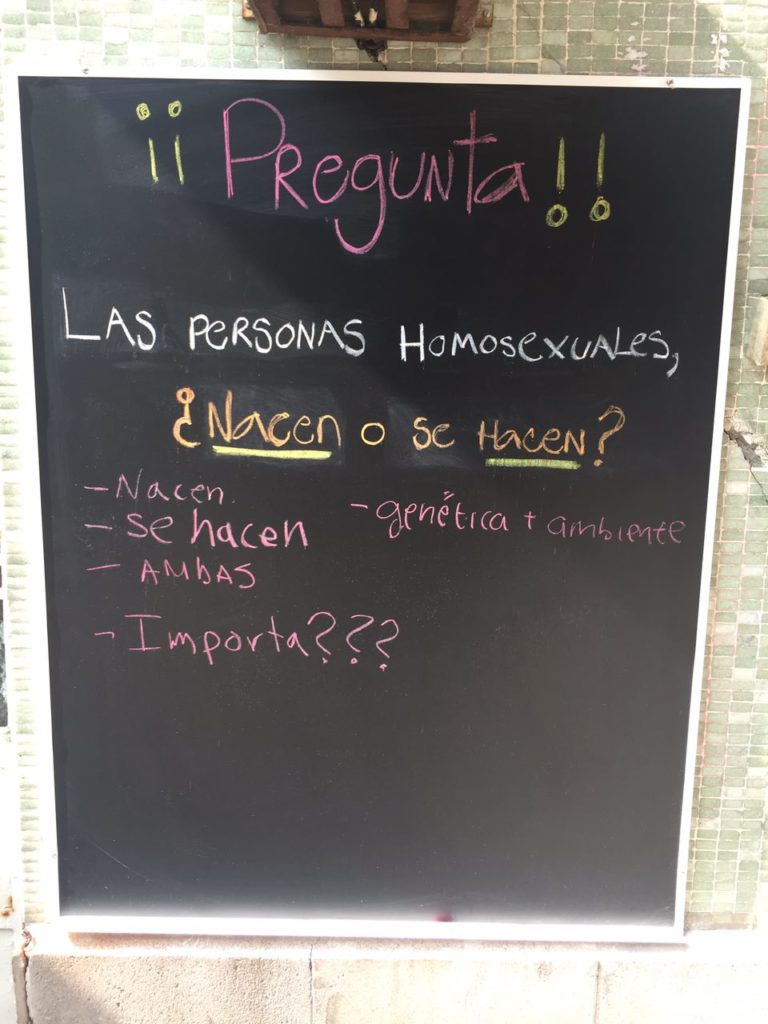 ¡¡ Pregunta !!
Las personas Homosexuales,
¿Nacen o se Hacen?
- Nacen.
- Se hacen
- AMBAS
- Importa???
- genética + ambiente